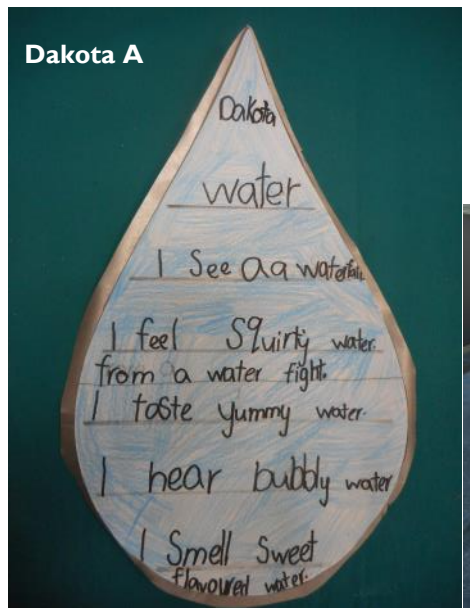 Dakota A
Dakota
water
I See aa waterfall
I feel Squirty water.
from a water fight.
I taste yummy water.
I hear bubbly water
I Smell Sweet
flavoured water.